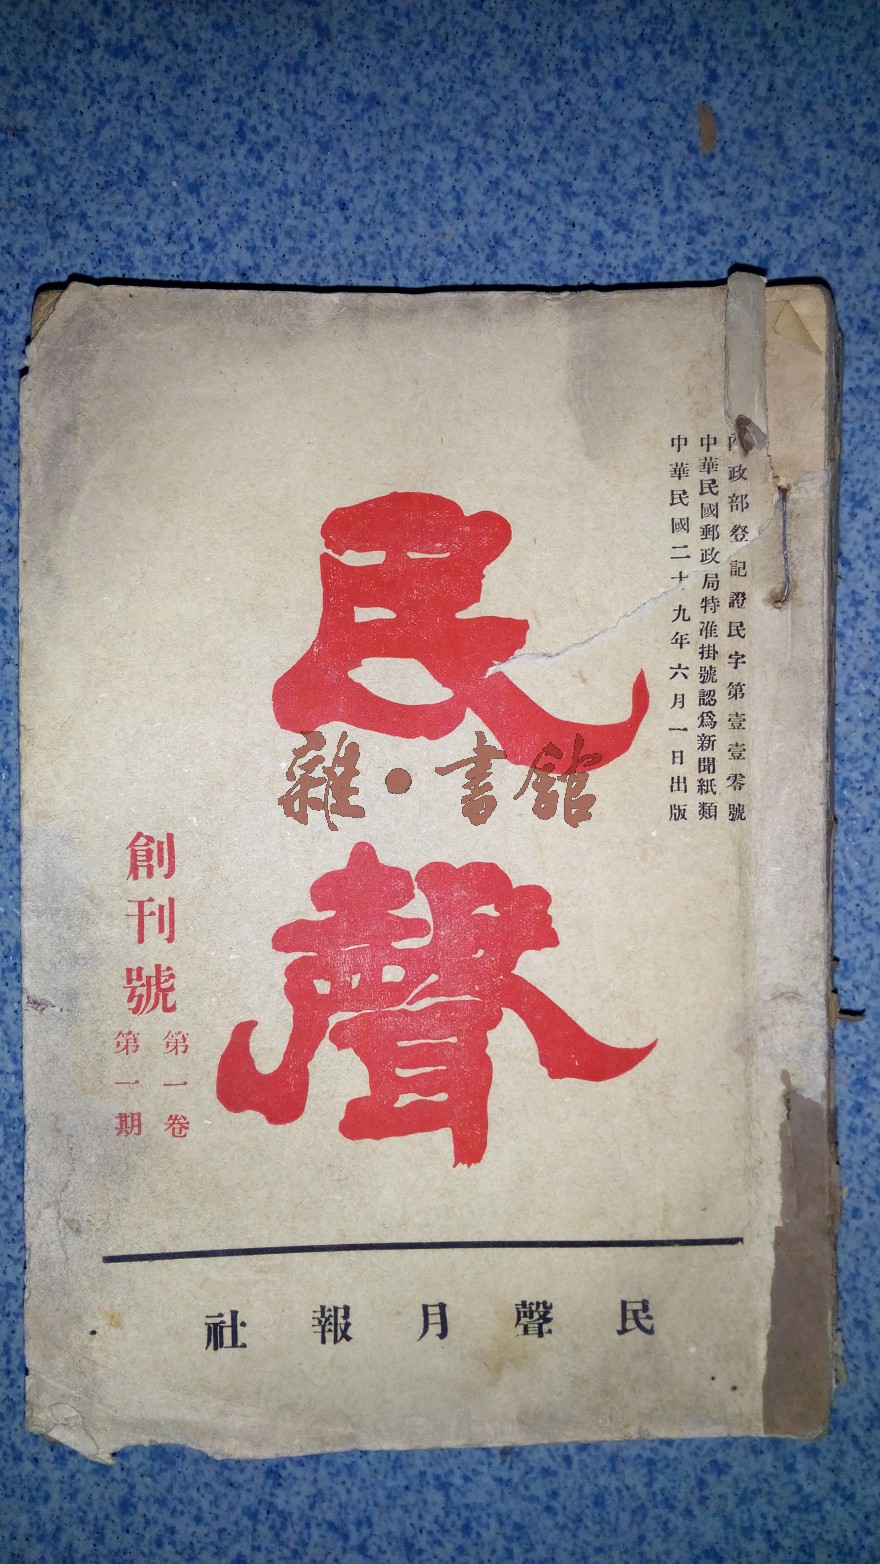 內政部登記證民字第壹壹零號
中華民國郵政局特准掛號認爲新聞紙類
中華民國二十九年六月一日出版
民聲
雜·書館
創刊號
第一卷
第一期
民聲月報社